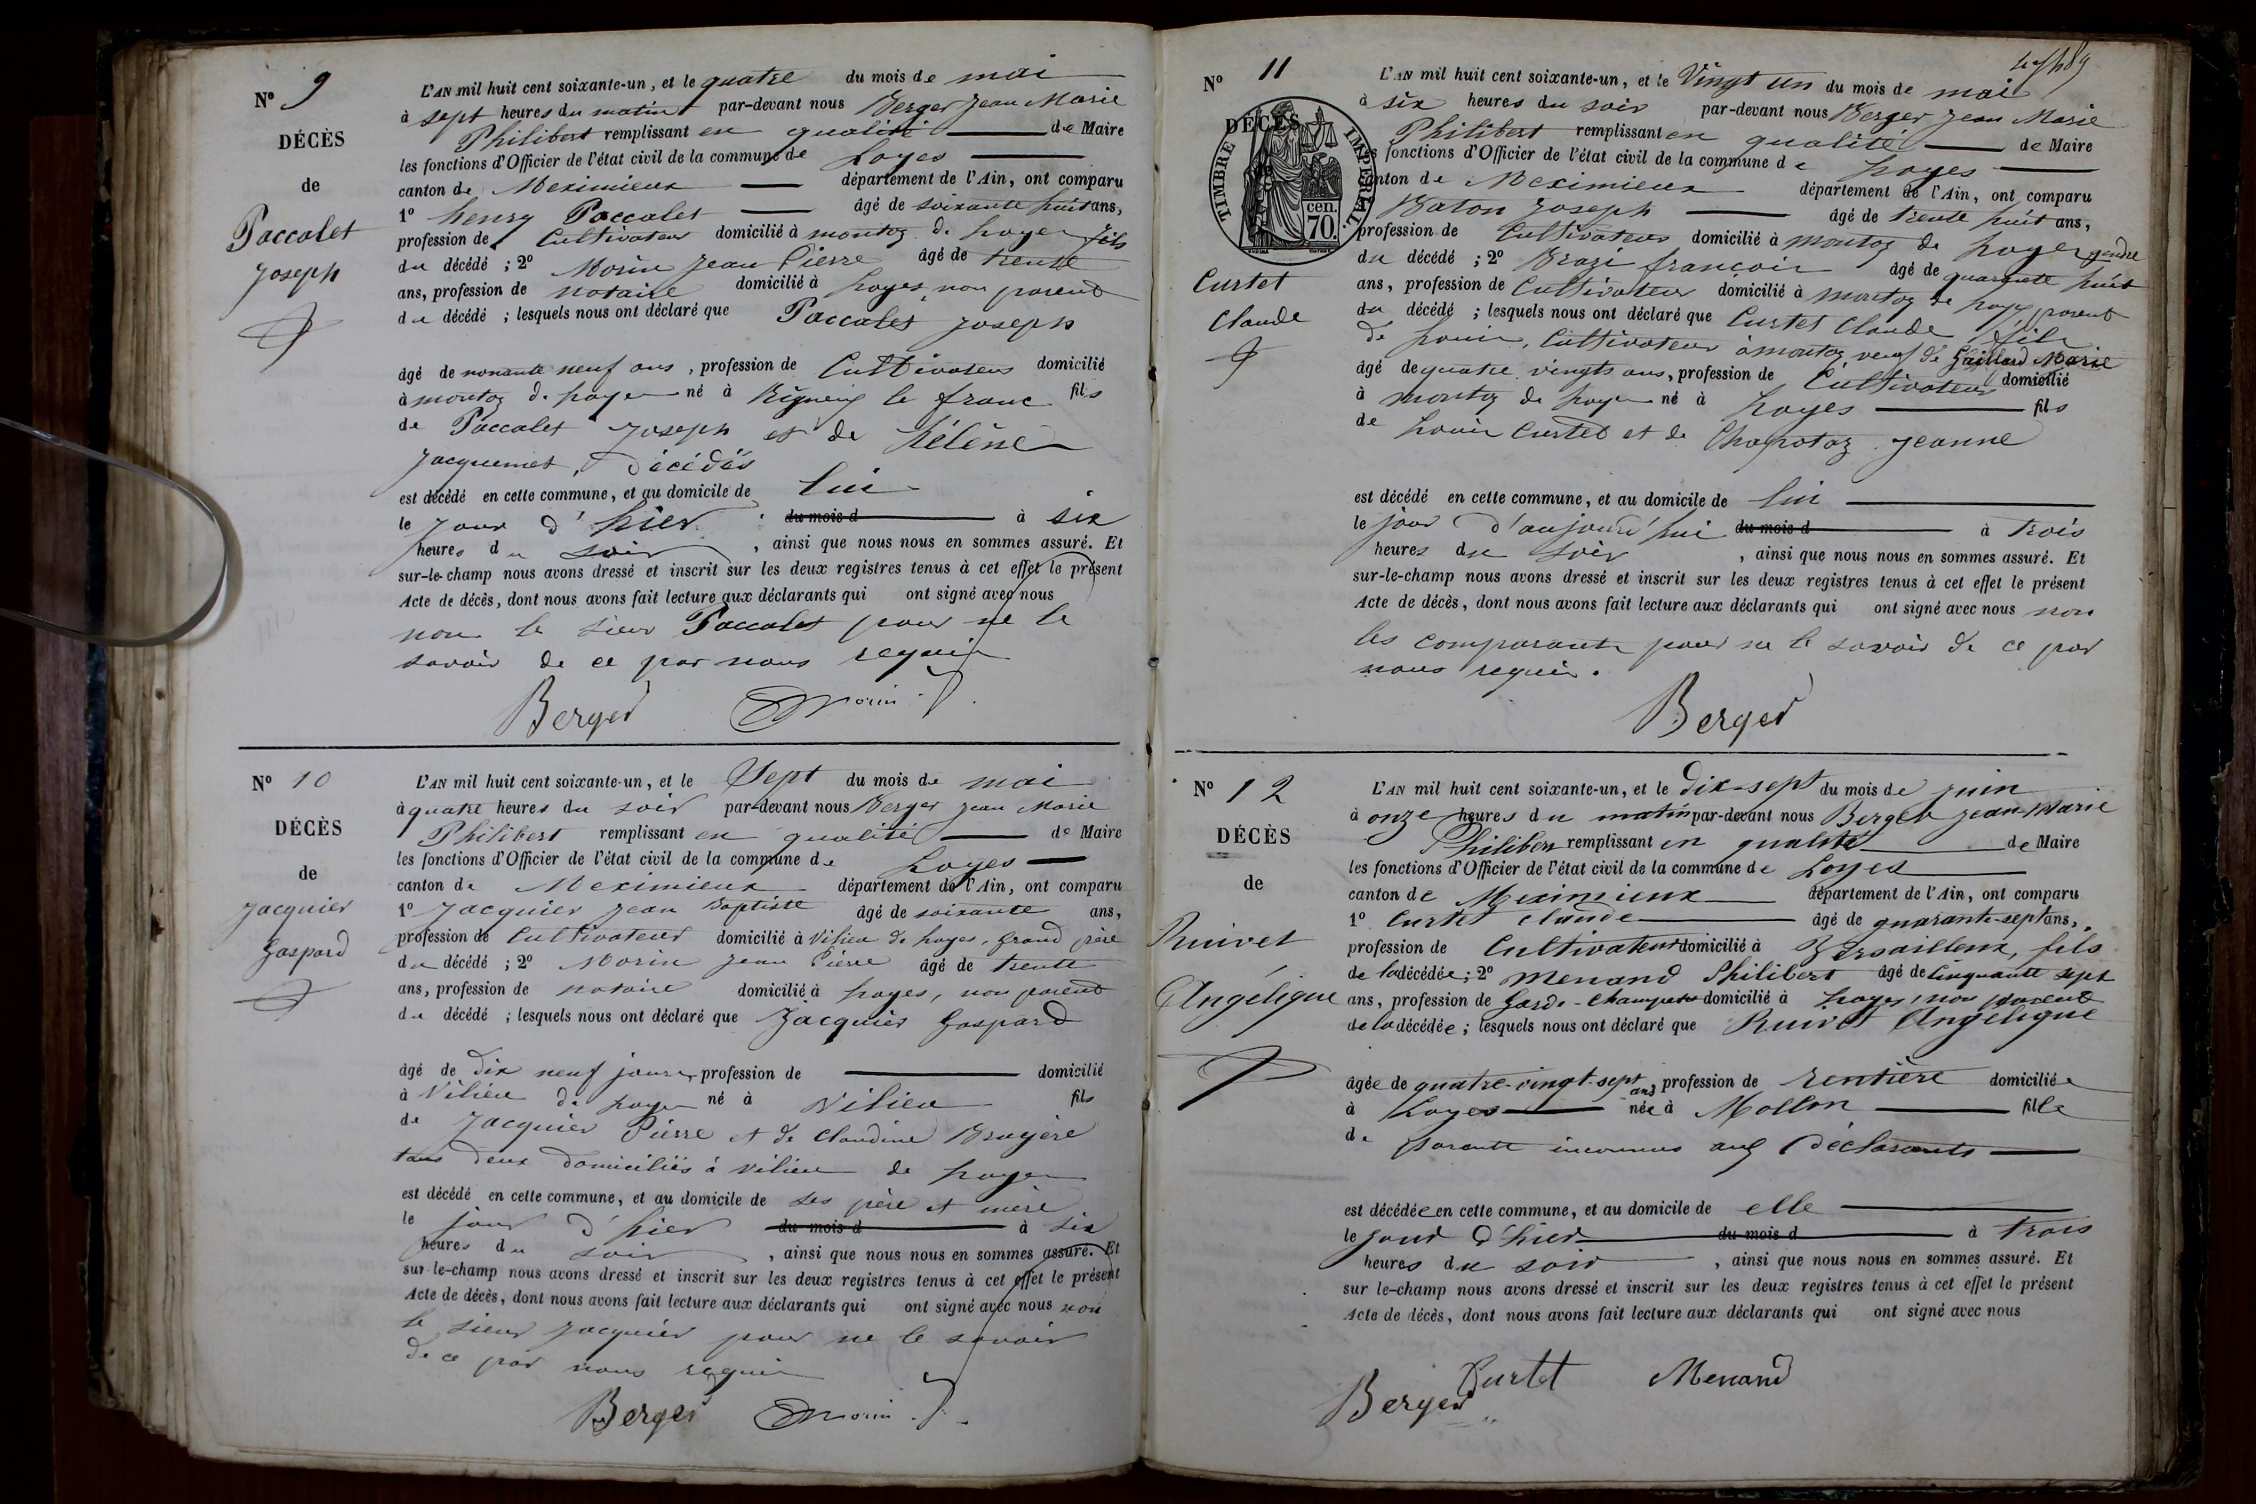 Nº 9
DÉCÈS
de
Paccalet
Joseph
L'AN mil huit cent soixante-un, et le quatre du mois de mai
à sept heures du matin par-devant nous Berger Jean Marie
Philibert remplissant en qualité de Maire
les fonctions d'Officier de l'état civil de la commune de Loyes
canton de Meximieux département de l'Ain, ont comparu
1º henry Paccalet âgé de soixante huit ans,
profession de Cultivateur domicilié à montoz de Loyes fils
du décédé ; 2º Morin Jean Pierre âgé de trente
ans, profession de notaire domicilié à Loyes, non parent
du décédé ; lesquels nous ont déclaré que Paccalet Joseph
âgé de nonante neuf ans, profession de Cultivateur domicilié
à montoz de Loyes né à Rigneux le franc fils
de Paccalet Joseph et de hélène
Jacquemet, décédés
est décédé en cette commune, et au domicile de lui
le jour d'hier du mois d à six
heures du soir, ainsi que nous nous en sommes assuré. Et
sur-le-champ nous avons dressé et inscrit sur les deux registres tenus à cet effet le présent
Acte de décès, dont nous avons fait lecture aux déclarants qui ont signé avec nous
non le sieur Paccalet pour ne le
savoir de ce par nous requis
Berger Morin
Nº 10
DÉCÈS
de
Jacquier
Gaspard
L'AN mil huit cent soixante-un, et le Sept du mois de mai
à quatre heures du soir par-devant nous Berger Jean Marie
Philibert remplissant en qualité de Maire
les fonctions d'Officier de l'état civil de la commune de Loyes
canton de Meximieux département de l'Ain, ont comparu
1º Jacquier Jean Baptiste âgé de soixante ans,
profession de Cultivateur domicilié à Vilieu de Loyes, grand père
du décédé ; 2º Morin Jean Pierre âgé de trente
ans, profession de notaire domicilié à Loyes, non parent
du décédé ; lesquels nous ont déclaré que Jacquier Gaspard
âgé de dix neuf jours, profession de domicilié
à Vilieu de Loyes né à Vilieu fils
de Jacquier Pierre et de Claudine Bruyère
tous deux domiciliés à Vilieu de Loyes
est décédé en cette commune, et au domicile de ses père et mère
le jour d'hier du mois d à six
heures du soir, ainsi que nous nous en sommes assuré. Et
sur-le-champ nous avons dressé et inscrit sur les deux registres tenus à cet effet le présent
Acte de décès, dont nous avons fait lecture aux déclarants qui ont signé avec nous non
le sieur Jacquier pour ne le savoir
de ce par nous requis
Berger Morin
Nº 11
DÉCÈS
TIMBRE IMPÉRIAL
70 cen.
Curtet
Claude
L'AN mil huit cent soixante-un, et le Vingt un du mois de mai
à six heures du soir par-devant nous Berger Jean Marie
Philibert remplissant en qualité de Maire
les fonctions d'Officier de l'état civil de la commune de Loyes
canton de Meximieux département de l'Ain, ont comparu
Baton Joseph âgé de trente huit ans,
profession de Cultivateur domicilié à montoz de Loyes gendre
du décédé ; 2º françois âgé de quarante huit
ans, profession de Cultivateur domicilié à montoz de Loyes parent
du décédé ; lesquels nous ont déclaré que Curtet Claude fils
de Louis, Cultivateur à montoz veuf de Gaillard Marie
âgé de quatre vingts ans, profession de Cultivateur domicilié
à montoz de Loyes né à Loyes fils
de Louis Curtet et de Chapotaz Jeanne
est décédé en cette commune, et au domicile de lui
le jour d'aujourd'hui du mois d à trois
heures du soir, ainsi que nous nous en sommes assuré. Et
sur-le-champ nous avons dressé et inscrit sur les deux registres tenus à cet effet le présent
Acte de décès, dont nous avons fait lecture aux déclarants qui ont signé avec nous non
les comparants pour ne le savoir de ce par
nous requis.
Berger
Nº 12
DÉCÈS
de
Ruivet
Angélique
L'AN mil huit cent soixante-un, et le dix-sept du mois de juin
à onze heures du matin par-devant nous Berger Jean-Marie
Philibert remplissant en qualité de Maire
les fonctions d'Officier de l'état civil de la commune de Loyes
canton de Meximieux département de l'Ain, ont comparu
1º Curtet Claude âgé de quarante-sept ans,
profession de Cultivateur domicilié à Versailleux, fils
de la décédée ; 2º Menand Philibert âgé de cinquante sept
ans, profession de Garde-Champêtre domicilié à Loyes, non parent
de la décédée ; lesquels nous ont déclaré que Ruivet Angélique
âgée de quatre-vingt-sept ans, profession de rentière domiciliée
à Loyes née à Mollon fille
de parents inconnus aux déclarants
est décédée en cette commune, et au domicile de elle
le jour d'hier du mois d à trois
heures du soir, ainsi que nous nous en sommes assuré. Et
sur-le-champ nous avons dressé et inscrit sur les deux registres tenus à cet effet le présent
Acte de décès, dont nous avons fait lecture aux déclarants qui ont signé avec nous
Curtet Menand
Berger